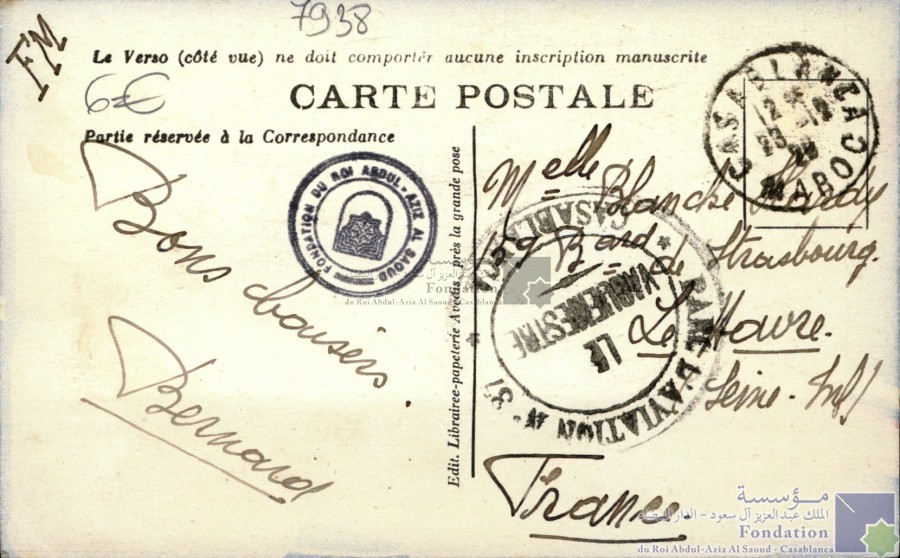 7938
FM
Le Verso (côté vue) ne doit comporter aucune inscription manuscrite
6€
CARTE POSTALE
Partie réservée à la Correspondance
CASABLANCA
12
23 -12
MAROC
FONDATION DU ROI ABDUL-AZIZ AL SAOUD
Bons baisers
Bernard
Edit. Librairee-papeterie Avedis, près la grande poste
Melle Blanche Hardy
159 Bard de Strasbourg.
Le Havre.
Seine-Inf
France.
PARC D'AVIATION N° 37
CASABLANCA
LE
VAGUEMESTRE
Fondation
du Roi Abdul-Aziz Al Saoud - Casablanca
مؤسسة
الملك عبد العزيز آل سعود - الدار البيضاء
Fondation
du Roi Abdul-Aziz Al Saoud - Casablanca